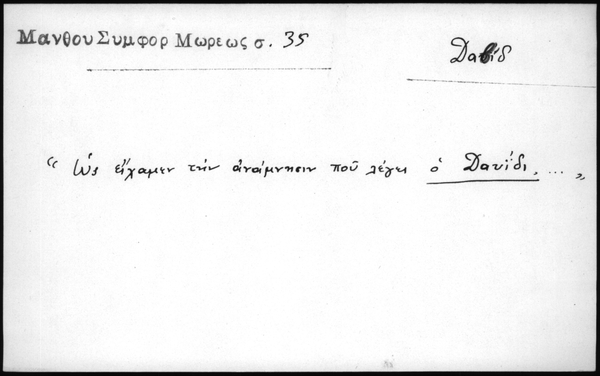 Μανθου Συμφορ Μωρεως σ. 35
Δαβίδ
“ Ὡς εἴχαμεν τὴν ἀνάμνησιν ποῦ λέγει ὁ Δαυΐδι, ... „